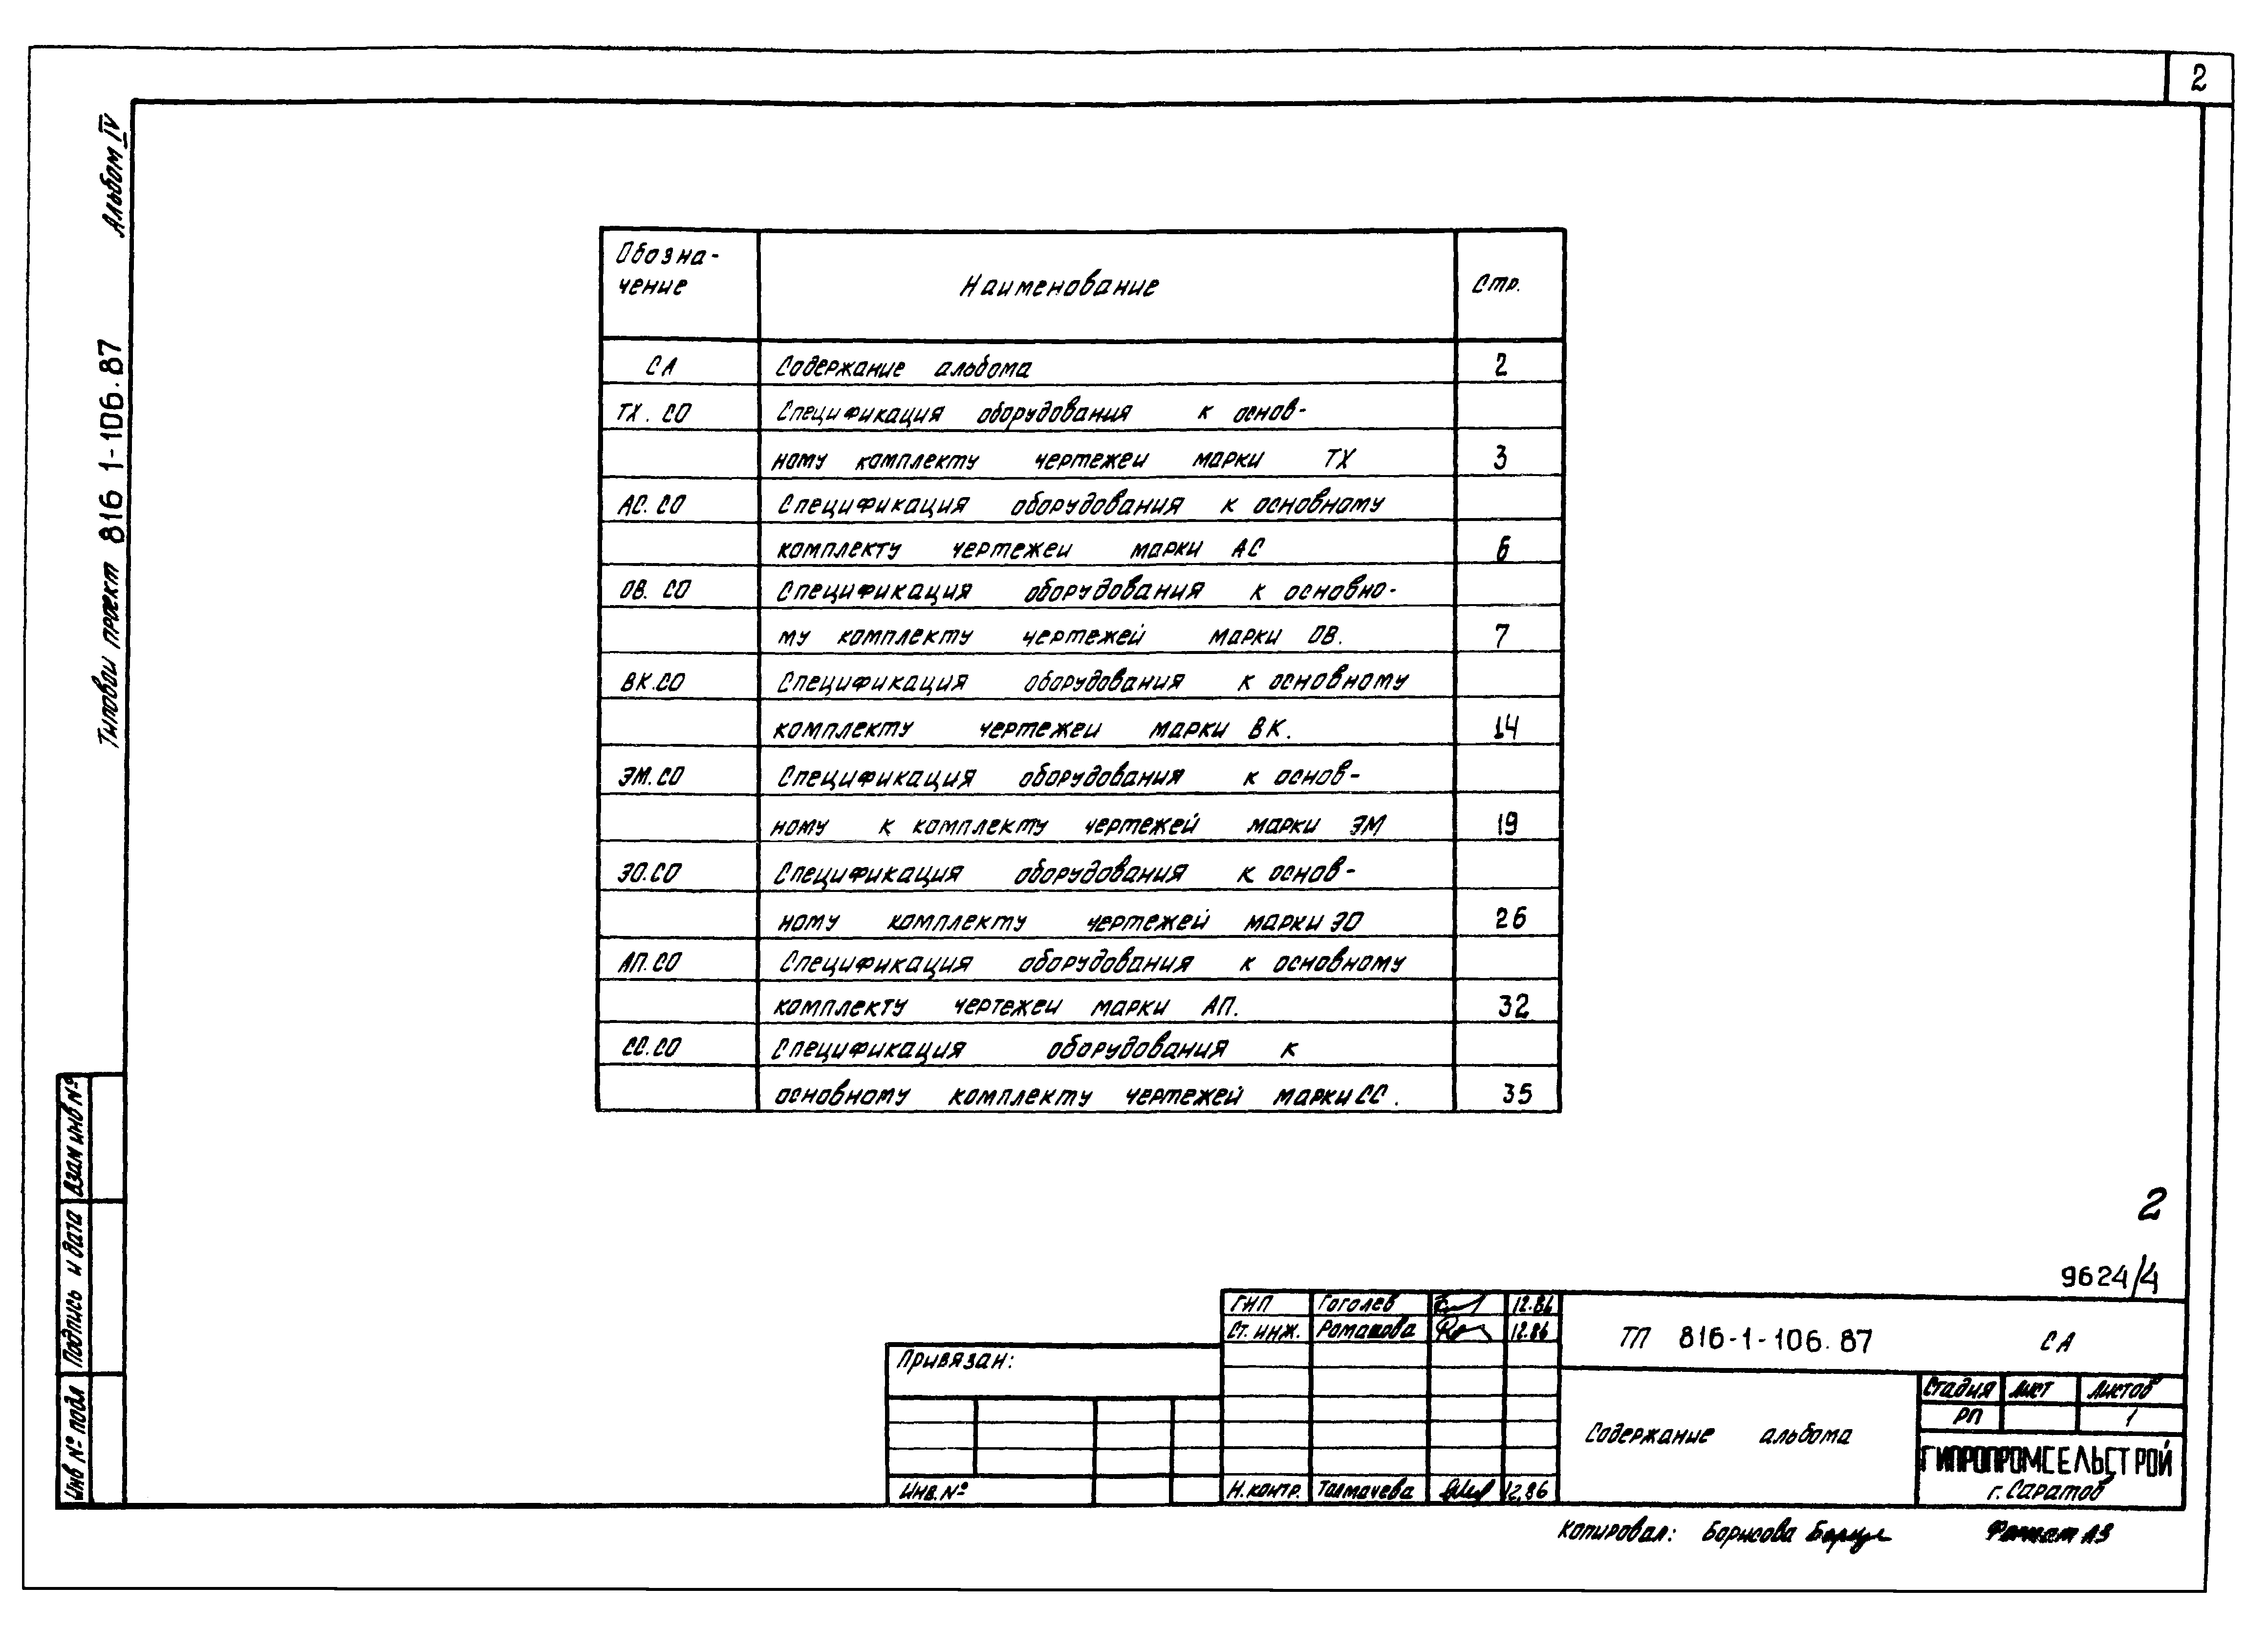 2
Альбом IV
Типовой проект 816 1-106.87
Обозна-
чение
Наименование
Стр.
СА Содержание альбома 2
ТХ.СО Спецификация оборудования к основ-
ному комплекту чертежей марки ТХ 3
АС.СО Спецификация оборудования к основному
комплекту чертежей марки АС 6
ОВ.СО Спецификация оборудования к основно-
му комплекту чертежей марки ОВ. 7
ВК.СО Спецификация оборудования к основному
комплекту чертежей марки ВК. 14
ЭМ.СО Спецификация оборудования к основ-
ному к комплекту чертежей марки ЭМ 19
ЭО.СО Спецификация оборудования к основ-
ному комплекту чертежей марки ЭО 26
АП.СО Спецификация оборудования к основному
комплекту чертежей марки АП. 32
СС.СО Спецификация оборудования к
основному комплекту чертежей марки СС. 35
Взам инв №
Подпись и дата
Инв № подл
2
9624/4
Привязан:
Инв.№
ГИП Гоголев 12.86
Ст. инж. Ромашова 12.86
Н.контр. Толмачева 12.86
ТП 816-1-106.87 СА
Содержание альбома
Стадия Лист Листов
РП 1
ГИПРОПРОМСЕЛЬСТРОЙ
г. Саратов
Копировал: Борисова
Формат А3